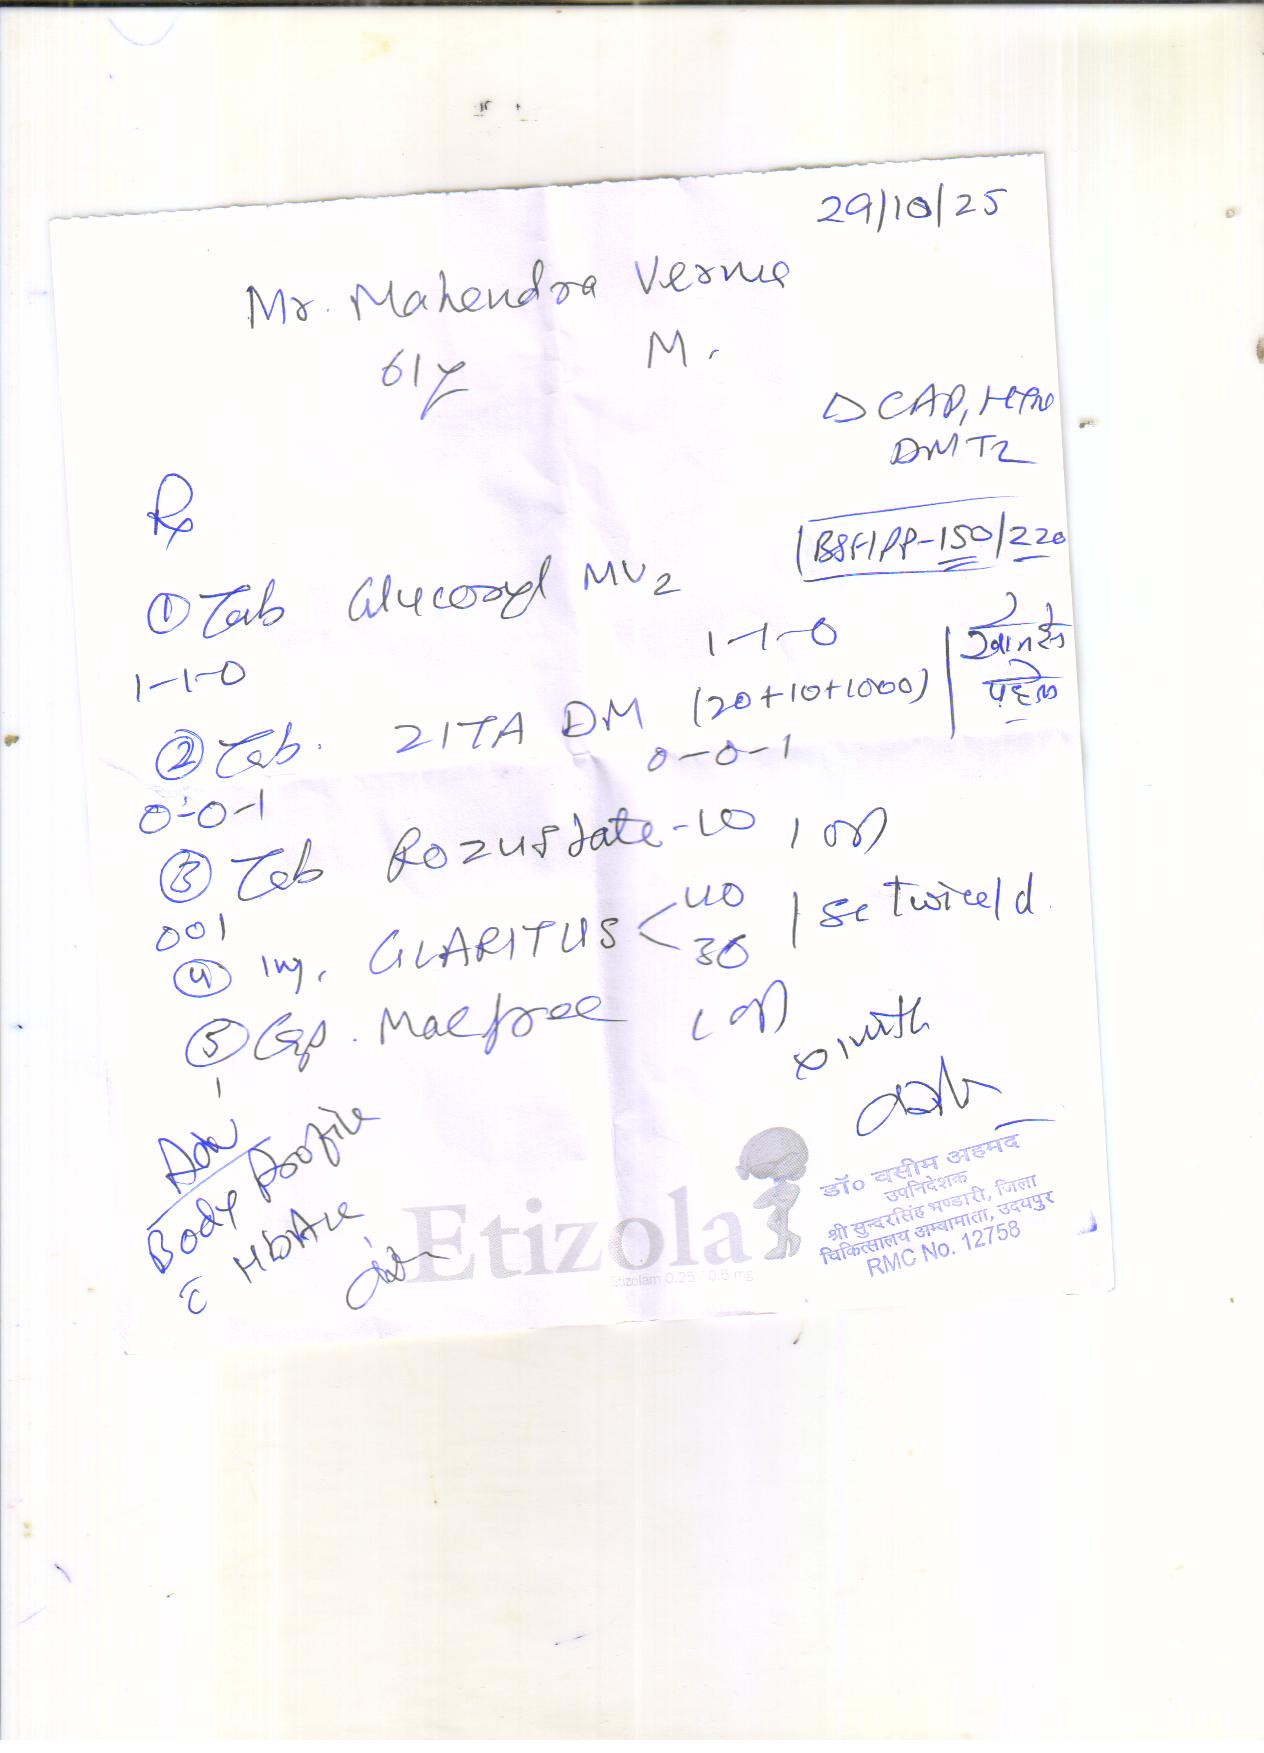 29/10/25
Mr. Mahendra Verma
61y M.
Δ CAD, HTN
DMT2
Rx
BSF/PP-150/220
① Tab Glucoryl MV2
1-1-0 1-1-0
② Tab. ZITA DM (20+10+1000)
0-0-1 0-0-1
खाने से
पहले
③ Tab Rozustate-10 1 OD
001
④ Inj. GLARITUS < 40 30 | Sc twice/d.
⑤ Cap. Macfree 1 OD
1
x 1 mth
Adv
Body profile
c HbA1c
Etizola
Etizolam 0.25 / 0.5 mg
डॉ० वसीम अहमद
उपनिदेशक
श्री सुन्दरसिंह भण्डारी, जिला
चिकित्सालय अम्बामाता, उदयपुर
RMC No. 12758